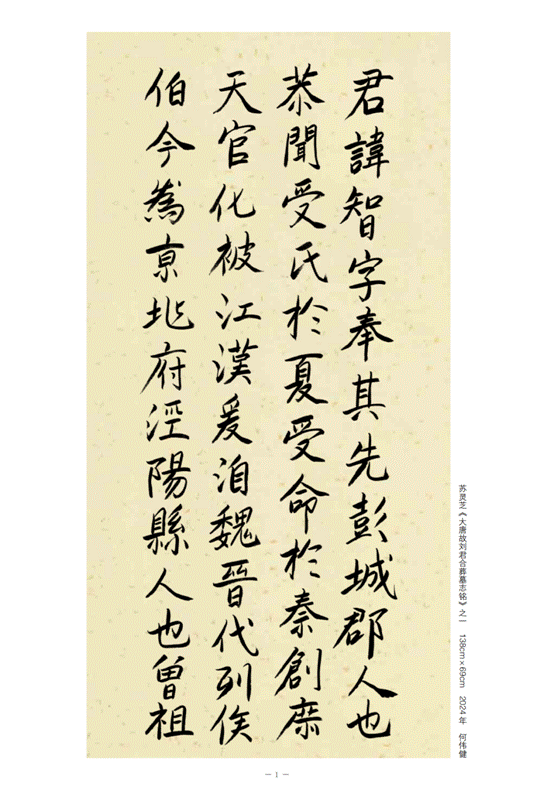 君諱智字奉其先彭城郡人也
恭聞受氏於夏受命於秦創廗
天官化被江漢爰洎魏晉代列侯
伯今為京兆府涇陽縣人也曾祖
苏灵芝《大唐故刘君合葬墓志铭》之一 138cm×69cm 2024年 何伟健
— 1 —